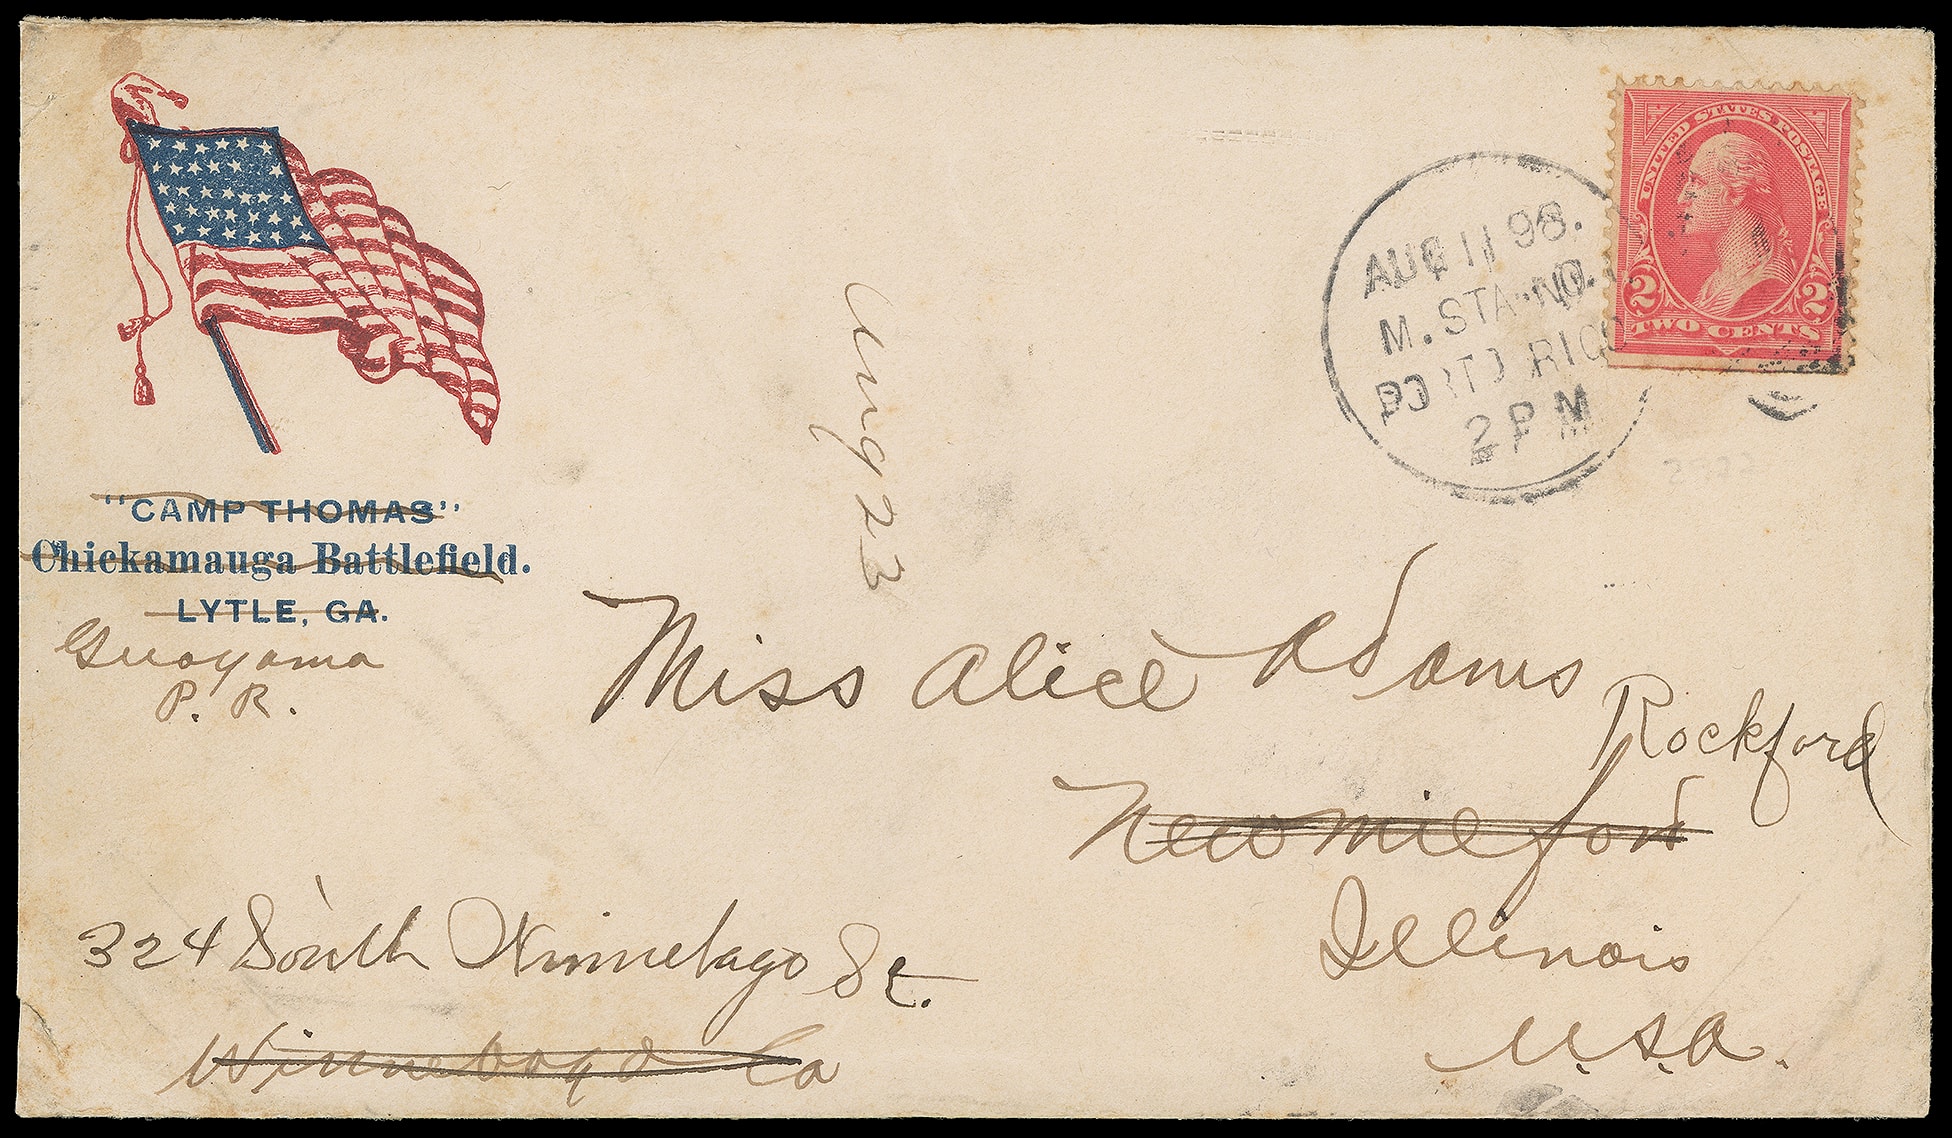 UNITED STATES POSTAGE
2 2
TWO CENTS
AUG 11 98.
M. STA. NO. 1
PORTO RICO
2 PM
"CAMP THOMAS"
Chickamauga Battlefield.
LYTLE, GA.
Guayama
P. R.
Aug 23
Miss Alice Adams
Rockford
New Milford
Illinois
U.S.A.
324 South Winnebago St.
Winnebago Co